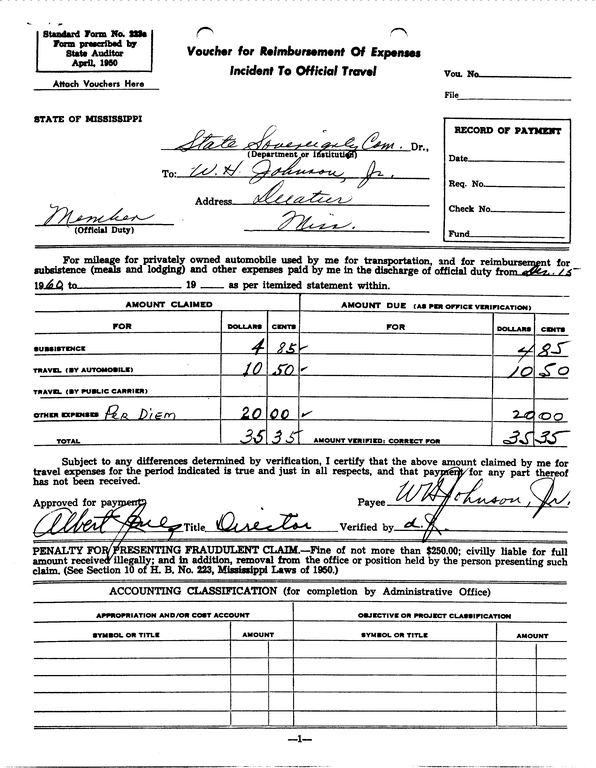 Standard Form No. 223a
Form prescribed by
State Auditor
April, 1950
Attach Vouchers Here
Voucher for Reimbursement Of Expenses
Incident To Official Travel
Vou. No.
File
STATE OF MISSISSIPPI
RECORD OF PAYMENT
Date
Req. No.
Check No.
Fund
State Sovereignty Com. Dr.,
(Department or Institution)
To: W. H. Johnson, Jr.
Address Decatur
Miss.
Member
(Official Duty)
For mileage for privately owned automobile used by me for transportation, and for reimbursement for
subsistence (meals and lodging) and other expenses paid by me in the discharge of official duty from Dec. 15
1960 to 19 as per itemized statement within.
AMOUNT CLAIMED AMOUNT DUE (AS PER OFFICE VERIFICATION)
FOR DOLLARS CENTS FOR DOLLARS CENTS
SUBSISTENCE 4 85 ✓ 4 85
TRAVEL (BY AUTOMOBILE) 10 50 ✓ 10 50
TRAVEL (BY PUBLIC CARRIER)
OTHER EXPENSES PER DIEM 20 00 ✓ 20 00
TOTAL 35 35 AMOUNT VERIFIED: CORRECT FOR 35 35
Subject to any differences determined by verification, I certify that the above amount claimed by me for
travel expenses for the period indicated is true and just in all respects, and that payment for any part thereof
has not been received.
Approved for payment: Payee W H Johnson, Jr.
Albert Jones Title Director Verified by d. J.
PENALTY FOR PRESENTING FRAUDULENT CLAIM.—Fine of not more than $250.00; civilly liable for full
amount received illegally; and in addition, removal from the office or position held by the person presenting such
claim. (See Section 10 of H. B. No. 223, Mississippi Laws of 1950.)
ACCOUNTING CLASSIFICATION (for completion by Administrative Office)
APPROPRIATION AND/OR COST ACCOUNT OBJECTIVE OR PROJECT CLASSIFICATION
SYMBOL OR TITLE AMOUNT SYMBOL OR TITLE AMOUNT
—1—